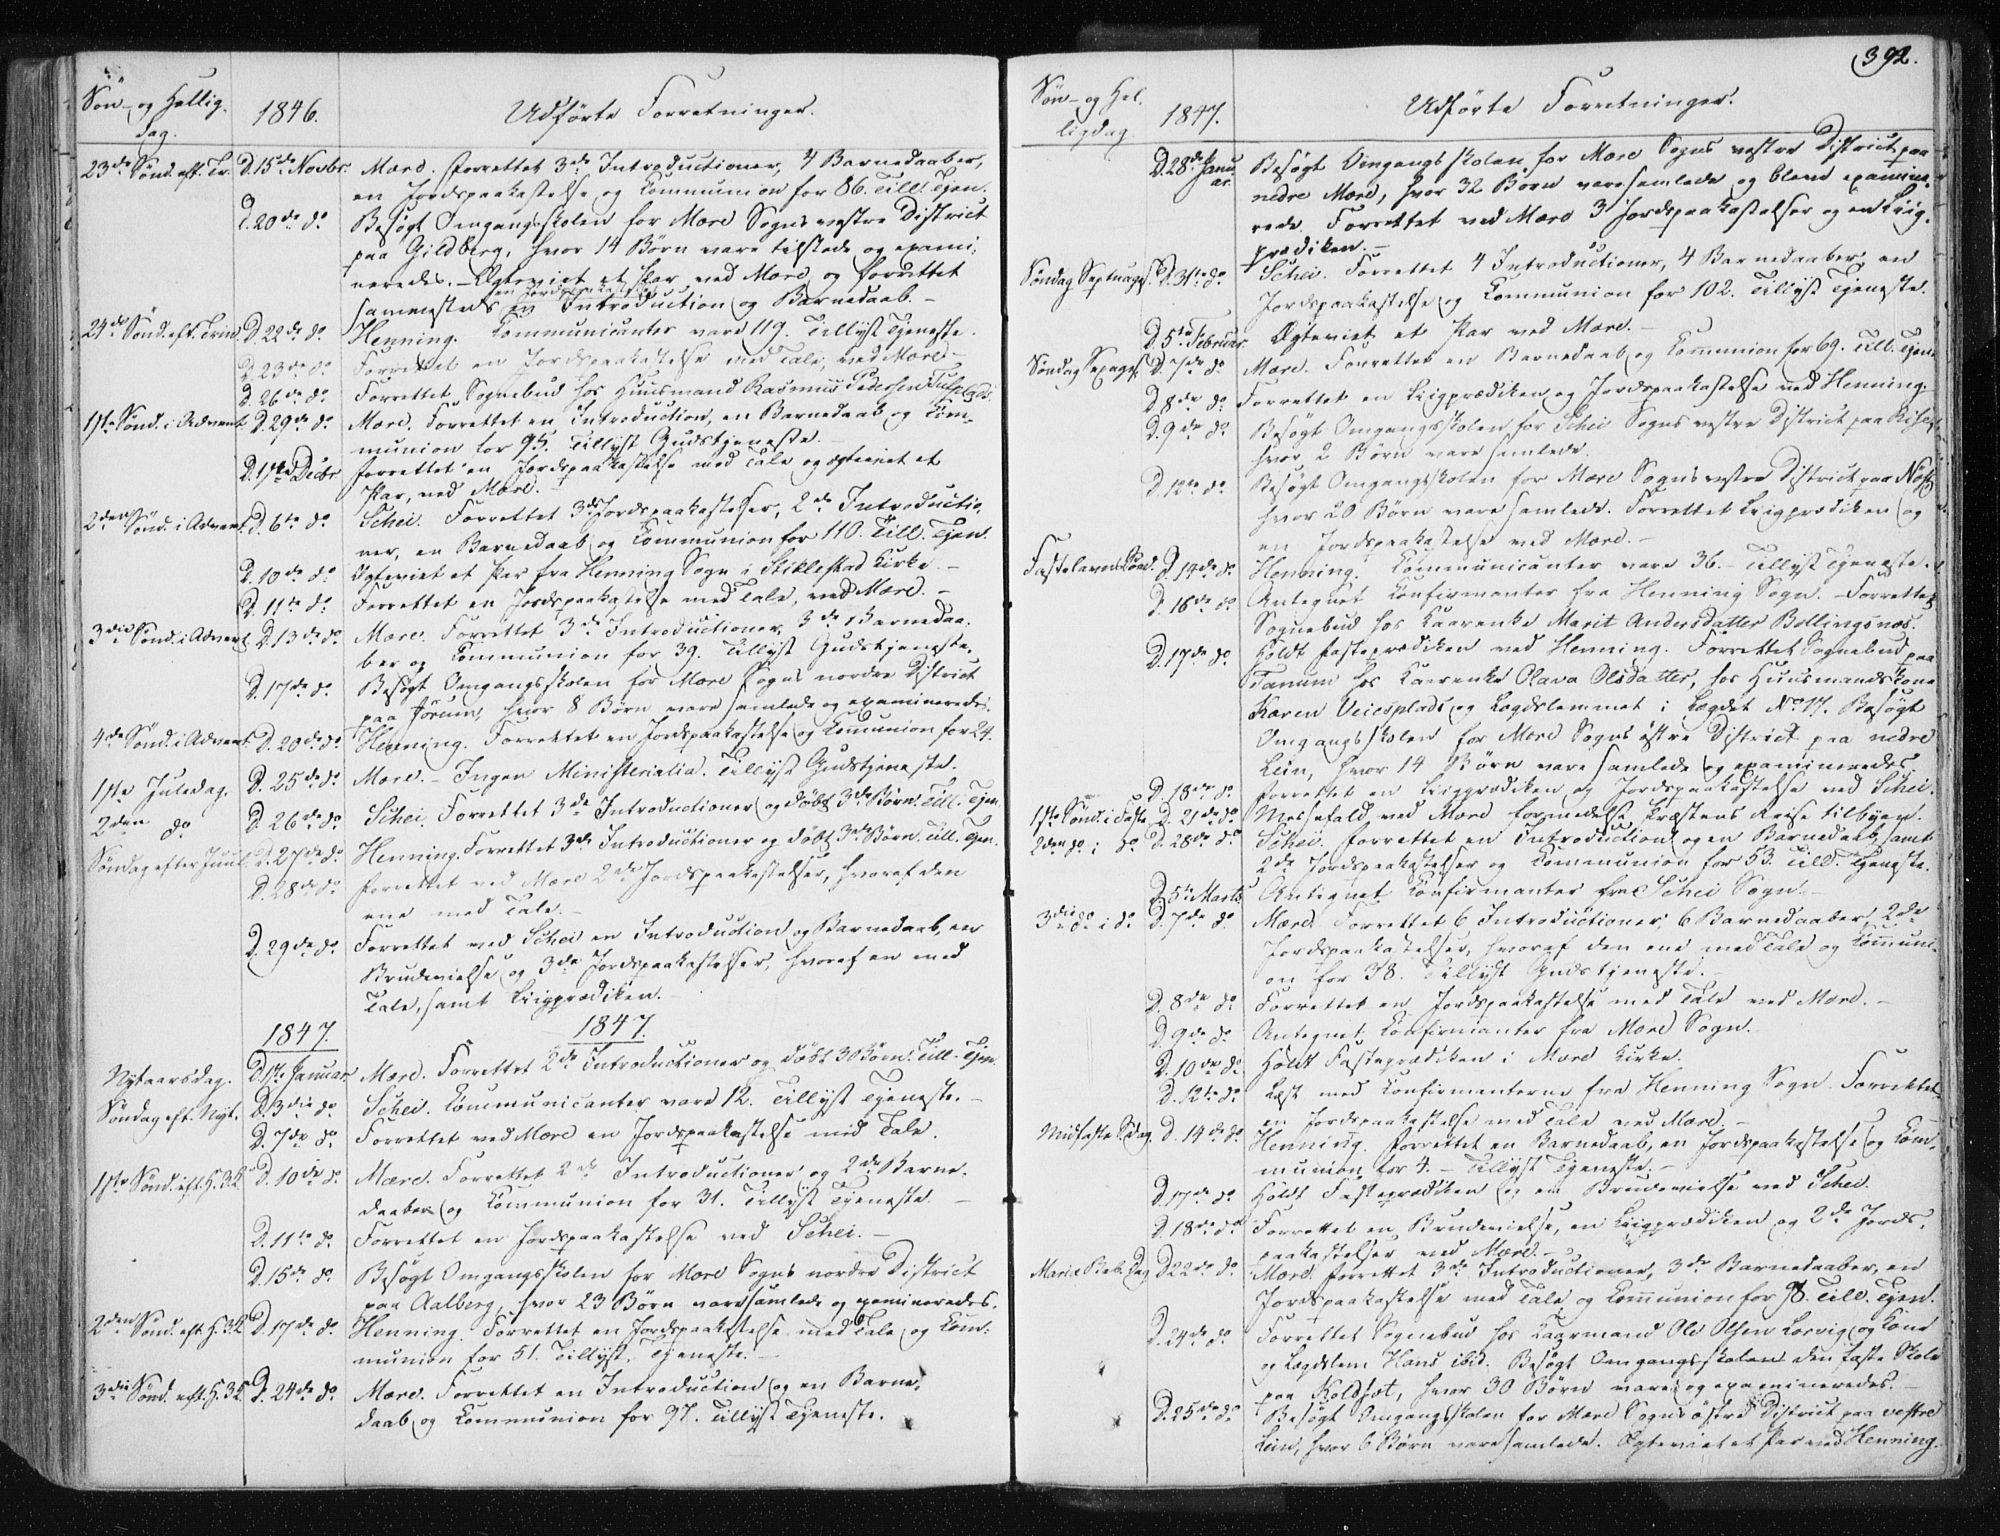 Søn- og Hellig-
dag.
1846.
Udførte Forretninger.
23de Sønd. eft. Tr. D. 15de Novbr. Mære. Forrettet 3de Introductioner, 4 Barnedaaber,
en Jordspaakastelse og Communion for 86. Till. Tjen.
D. 20de do Besøgt Omgangsskolen for Mære Sogns vestre District
paa Gildberg, hvor 14 Børn vare tilstede og exami-
neredes. Ægteviet et Par ved Mære og forrettet
en Jordspaakastelse
sammesteds en Introduction og Barnedaab. –
24de Sønd. eft. Trin. D. 22de do Henning. Communicanter vare 119. Tillyst Tjeneste.
D. 23de do Forrettet en Jordspaakastelse med Tale, ved Mære –
D. 26de do Forrettet Sognebud hos Huusmand Rasmus Pedersen
1ste Sønd. i Advent D. 29de do Mære. Forrettet en Introduction, en Barnedaab og Com-
munion for 95. Tillyst Gudstjeneste. –
D. 1ste Decbr. Forrettet en Jordspaakastelse med Tale og ægteviet et
Par, ved Mære.
2den Sønd. i Advent D. 6te do Schei. Forrettet 3de Jordspaakastelser, 2de Introductio-
ner, en Barnedaab og Communion for 110. Till. Tjen.
D. 10de do Ægteviet et Par fra Henning Sogn i Stiklestad Kirke. –
D. 11te do Forrettet en Jordspaakastelse med Tale, ved Mære. –
3die Sønd. i Advent D. 13de do Mære. Forrettet 3de Introductioner, 3de Barnedaa-
ber og Communion for 39. Tillyst Gudstjeneste.
D. 17de do Besøgt Omgangsskolen for Mære Sogns nordre District
paa Jørum, hvor 8 Børn vare samlede og examineredes.
4de Sønd. i Advent D. 20de do Henning. Forrettet en Jordspaakastelse og Communion for 24.
1ste Juledag. D. 25de do Mære. – Ingen Ministerialia. Tillyst Gudstjeneste.
2den do D. 26de do Schei. Forrettet 3de Introductioner og døbt 3de Børn. Till. Tjen.
Søndag efter Juul. D. 27de do Henning. Forrettet 3de Introductioner og døbt 3de Børn. Till. Tjen.
D. 28de do Forrettet ved Mære 2de Jordspaakastelser, hvoraf den
ene med Tale. –
D. 29de do Forrettet ved Schei en Introduction og Barnedaab, en
Brudevielse og 3de Jordspaakastelser, hvoraf en med
Tale, samt Liigprædiken. –
1847. 1847.
Nytaarsdag. D. 1ste Januar. Mære. Forrettet 2de Introductioner og døbt 3 Børn. Till. Tjen.
Søndag eft. Nyt. D. 3die do Schei. Communicanter vare 12. Tillyst Tjeneste. –
D. 7de do Forrettet ved Mære en Jordspaakastelse med Tale.
1ste Sønd. eft. H. 3 K. D. 10de do Mære. Forrettet 2de Introductioner og 2de Barne-
daaber og Communion for 31. Tillyst Tjeneste –
D. 11te do Forrettet en Jordspaakastelse ved Schei. –
D. 15de do Besøgt Omgangsskolen for Mære Sogns nordre District
paa Aalberg, hvor 23 Børn vare samlede og examineredes.
2den Sønd. eft. H. 3 K. D. 17de do Henning. Forrettet en Jordspaakastelse med Tale og Com-
munion for 51. Tillyst Tjeneste. –
3die Sønd. eft. H. 3 K. D. 24de do Mære. Forrettet en Introduction og en Barne-
daab og Communion for 97. Tillyst Tjeneste.
392.
Søn- og Hel-
ligdag.
1847.
Udførte Forretninger.
D. 28de Janu-
ar. Besøgt Omgangsskolen for Mære Sogns vestre District paa
nedre Mære, hvor 32 Børn vare samlede og bleve examine-
rede. Forrettet ved Mære 3 Jordspaakastelser og en Liig-
prædiken. –
Søndag Septuages. D. 31te do Schei. Forrettet 4 Introductioner, 4 Barnedaaber, en
Jordspaakastelse og Communion for 102. Tillyst Tjeneste.
D. 5te Februar. Ægteviet et Par ved Mære. –
Søndag Sexages. D. 7de do Mære. Forrettet en Barnedaab og Communion for 69. Till. Tjen.
D. 8de do Forrettet en Liigprædiken og Jordspaakastelse ved Henning.
D. 9de do Besøgt Omgangsskolen for Schei Sogns vestre District paa
hvor 2 Børn vare samlede.
D. 12te do Besøgt Omgangsskolen for Mære Sogns vestre District paa
hvor 20 Børn vare samlede. Forrettet Liigprædiken og
en Jordspaakastelse ved Mære. –
Fastelavns Sønd. D. 14de do Henning. Communicanter vare 36. – Tillyst Tjeneste.
D. 16de do Antegnet Confirmanter fra Henning Sogn. – Forrettet
Sognebud hos Kaarenke Marit Andersdatter Bollingsnæs.
D. 17de do Holdt Fasteprædiken ved Henning. Forrettet Sognebud paa
Tanum hos Kaarenke Olava Olsdatter, hos Huusmandskone
Karen Veiesplads og Lægdslemmet i Lægdet No 17. Besøgt
Omgangsskolen for Mære Sogns østre District paa nedre
Lein, hvor 14 Børn vare samlede og examineredes.
D. 18de do Forrettet en Liigprædiken og Jordspaakastelse ved Schei.
1ste Sønd. i Faste D. 21de do Messefald ved Mære formedelst Præstens Reise til byen.
2den do i do D. 28de do Schei. Forrettet en Introduction og en Barnedaab, samt
2de Jordspaakastelser og Communion for 53. Till. Tjeneste.
D. 5te Marts Antegnet Confirmanter fra Schei Sogn. –
3die do i do D. 7de do Mære. Forrettet 6 Introductioner, 6 Barnedaaber, 2de
Jordspaakastelser, hvoraf den ene med Tale og Communi-
on for 38. Tillyst Gudstjeneste. –
D. 8de do Forrettet en Jordspaakastelse med Tale ved Mære. –
D. 9de do Antegnet Confirmanter fra Mære Sogn.
D. 10de do Holdt Fasteprædiken i Mære Kirke.
D. 12te do Læst med Confirmanterne fra Henning Sogn. Forrettet
en Jordspaakastelse med Tale ved Mære. –
Midfaste Sdag. D. 14de do Henning. Forrettet en Barnedaab, en Jordspaakastelse og Com-
munion for 4. – Tillyst Tjeneste. –
D. 17de do Holdt Fasteprædiken og en Brudevielse ved Schei.
D. 18de do Forrettet en Brudevielse, en Liigprædiken og 2de Jords-
paakastelser ved Mære. –
Mariæ Beb. Dag D. 22de do Mære. Forrettet 3de Introductioner, 3de Barnedaaber, en
Jordspaakastelse med Tale og Communion for 98. Till. Tjen.
D. 24de do Forrettet Sognebud hos Kaarmand Ole Olsen Lorvig og Kone
og Lægdslem Hans ibid. Besøgt Omgangsskolen den faste Skole
paa Koldsæt, hvor 30 Børn vare og examineredes. –
D. 25de do Besøgt Omgangsskolen for Mære Sogns østre District paa vestre
Lein, hvor 6 Børn vare samlede. Ægteviet et Par ved Henning.